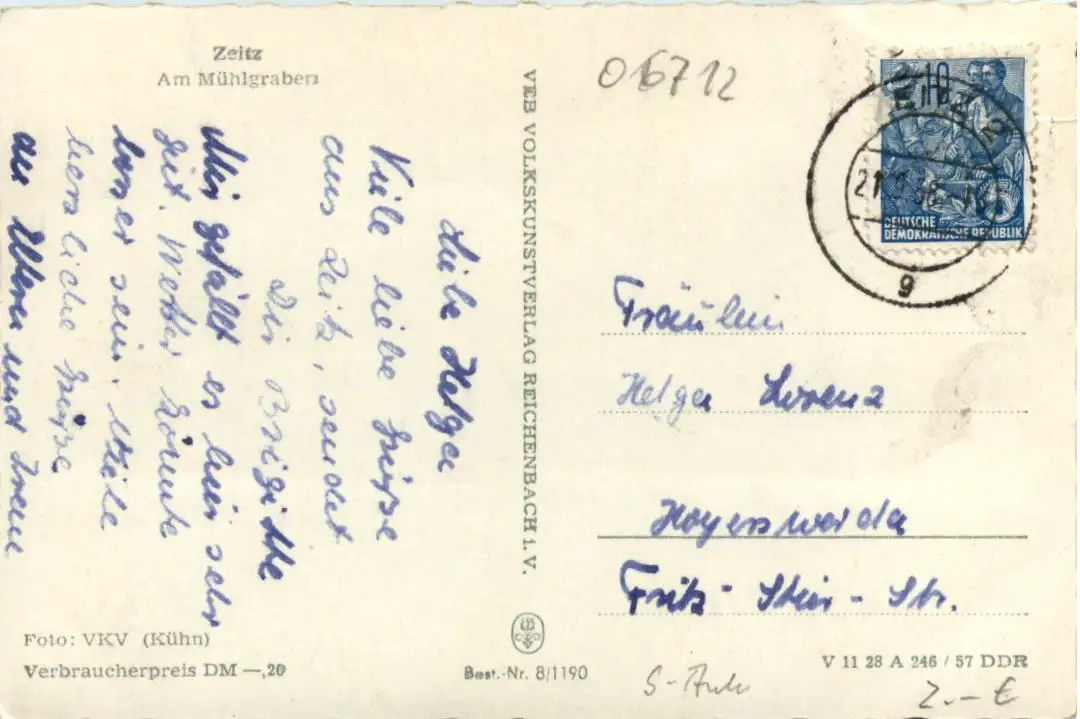 Zeitz
Am Mühlgraben
Liebe Helga
Viele liebe Grüße
aus Zeitz, sendet
Dir Brigitte
Mir gefällt es hier sehr
gut. Wetter könnte
besser sein. Viele
herzliche Grüße
an Eltern und
Foto: VKV (Kühn)
Verbraucherpreis DM —,20
VEB VOLKSKUNSTVERLAG REICHENBACH i. V.
Best.-Nr. 8/1190
016712
10
5
DEUTSCHE
DEMOKRATISCHE REPUBLIK
ZEITZ 2
g
Fräulein
Helga Lorenz
Hoyerswerda
Fritz-Stein-Str.
V 11 28 A 246 / 57 DDR
2.-- €